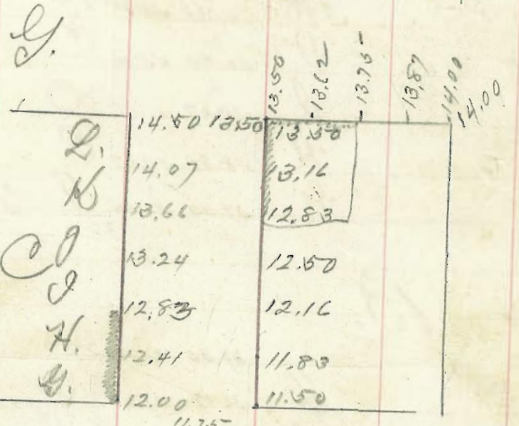 G.
13.50 13.62 13.75 13.87 14.00
14.00
L. 14.50 13.50 13.50
K 14.07 13.16
13.66 12.83
J 13.24 12.50
I 12.83 12.16
H. 12.41 11.83
G. 12.00 11.50
11.75